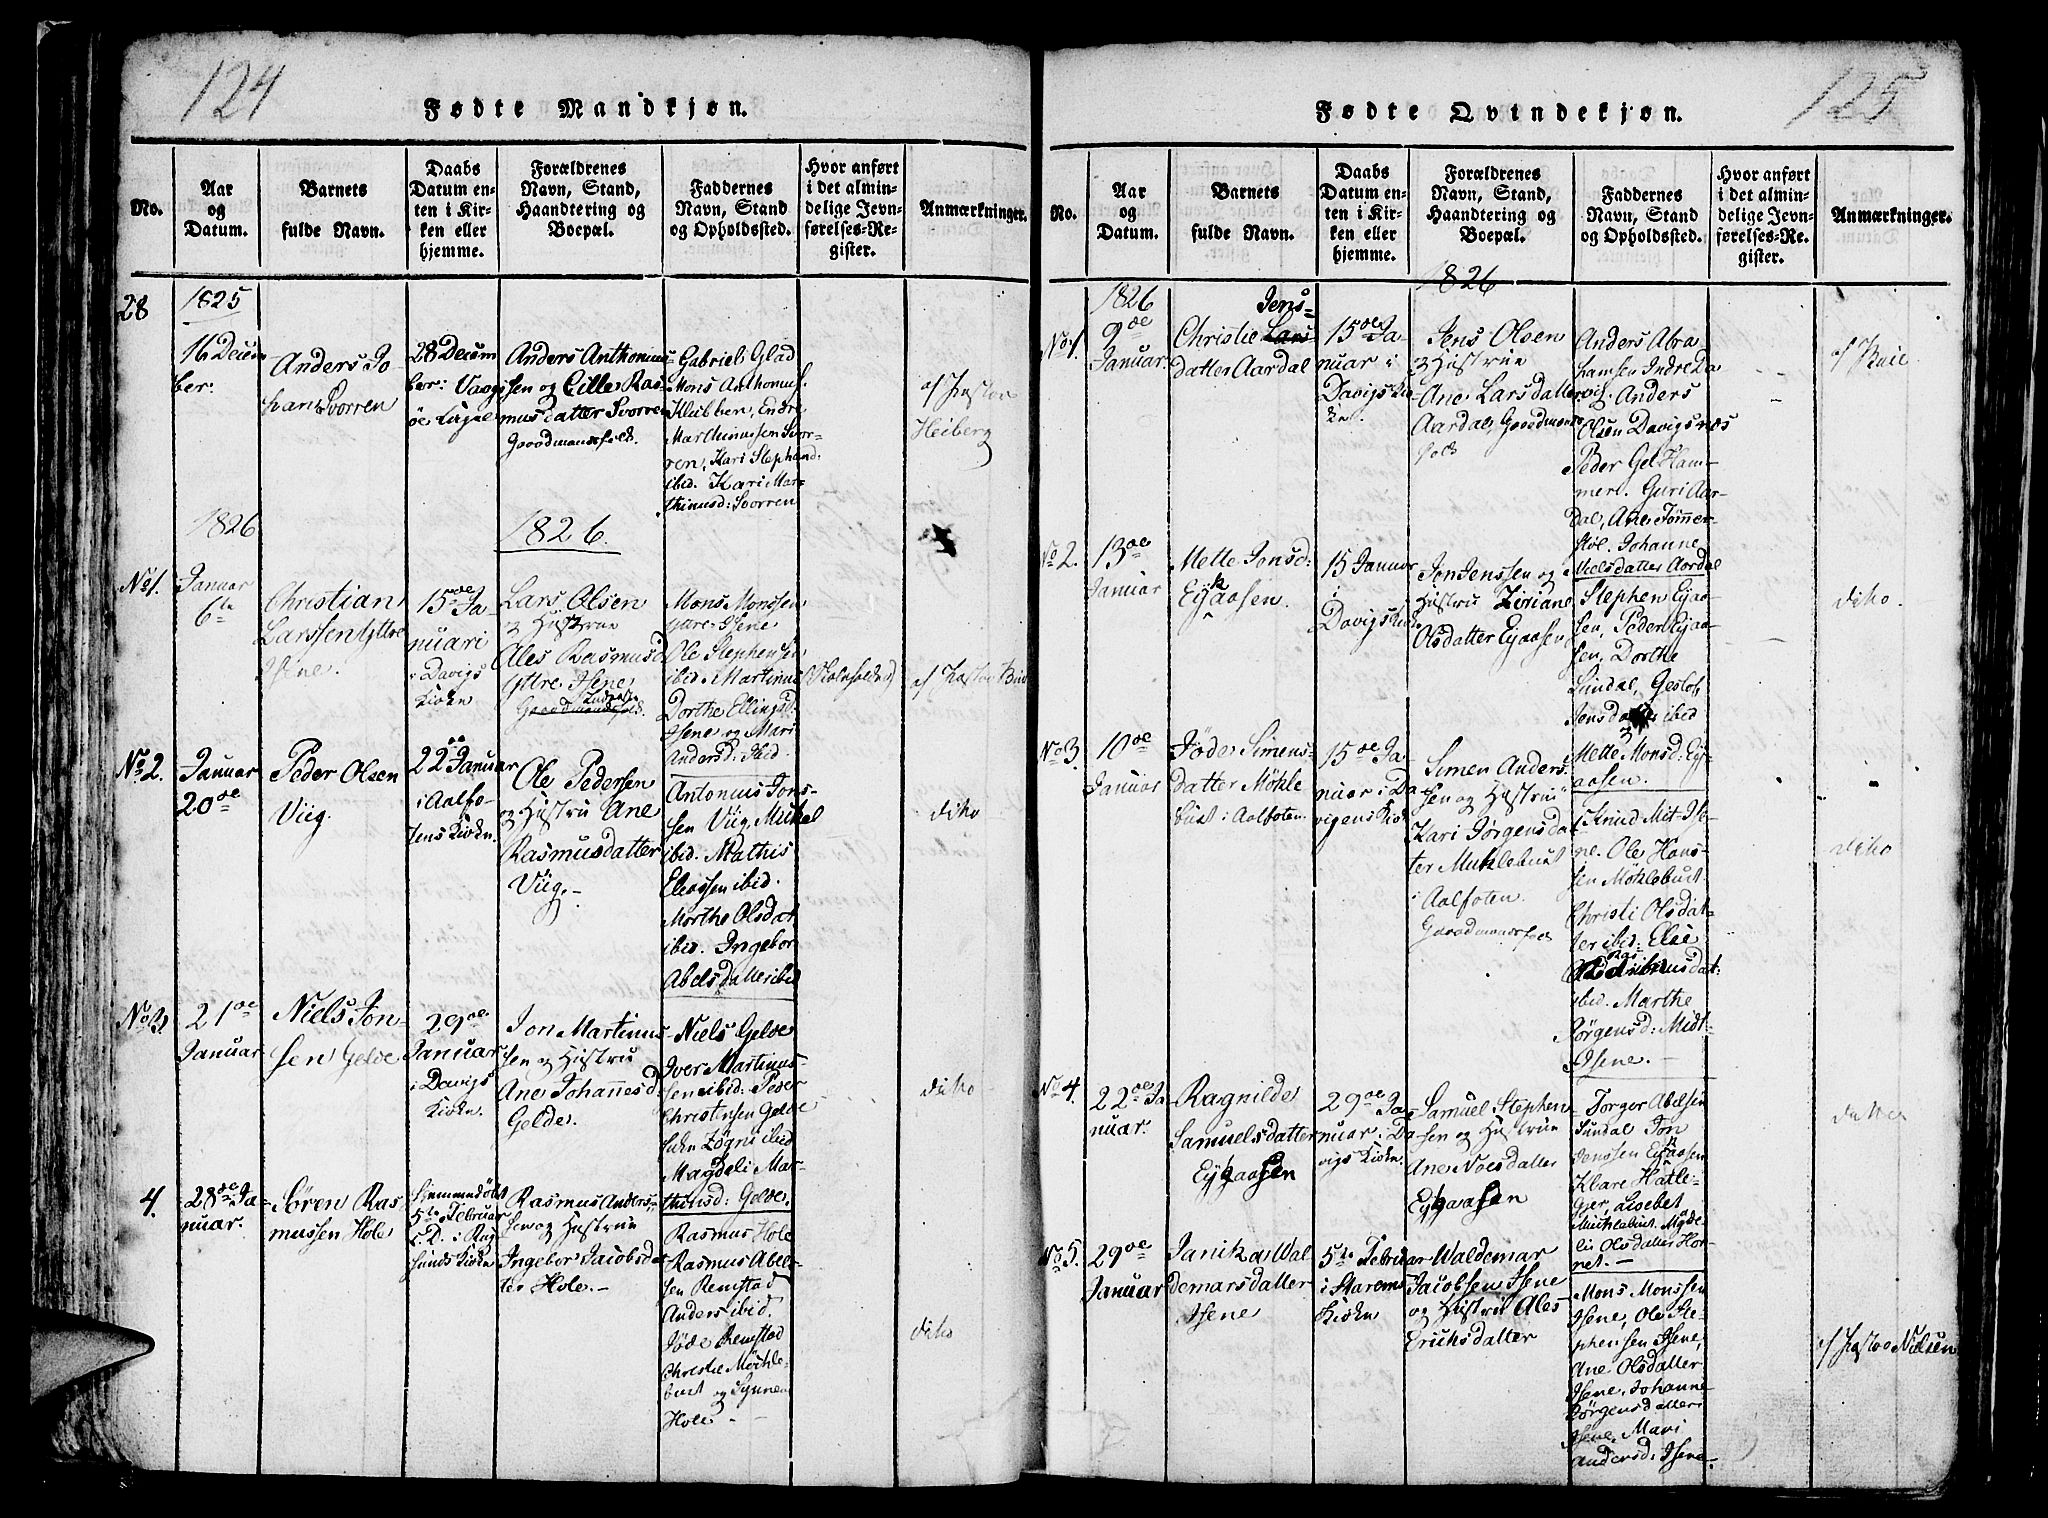 124
Fødte Mandkjøn.
No.
Aar
og
Datum.
Barnets
fulde Navn.
Daabs
Datum en-
ten i Kir-
ken eller
hjemme.
Forældrenes
Navn, Stand,
Haandtering og
Boepæl.
Faddernes
Navn, Stand
og Opholdssted.
Hvor anført
i det almin-
delige Jevn-
førelses-Re-
gister.
Anmærkninger.
28
1825
16 Decem
ber:
Anders Jo-
han Svorren
28 Decem
ber: Vaags
øe Kirke
Anders Anthonius-
sen og Cille Ras-
musdatter Svorren
Gaardmandsfolk.
Gabriel Glad
Mons Anthoniuss.
Klubben, Endre
Marthinussen Svor-
ren, Kari Stephansd:
ibid. Kari Mar-
thinusd: Svorren
af Pastor
Heiberg
1826
1826.
No 1.
Januar
6te
Christian
Larssen Yttre
Isene.
15de Ja
nuar i
Davigs
Kirke
Lars Olsen
og Hustrue
Ales Rasmusd.
Yttre Isene
Gaardmandsfolk.
Mons Monssen
Yttre-Isene
Ole Stephensen
ibid. Martinus
Dorthe Ellingsd:
Isene og Mari
Andersd: ibid.
af Pastor Buie
No 2.
Januar
20de
Peder Olsen
Viig.
22de Januar
i Aalfo-
tens Kirke
Ole Pedersen
og Hustru Ane
Rasmusdatter
Viig.-
Antonius Jons-
sen Viig, Mikel
ibid. Mathis
Eliassen ibid.
Marthe Olsdat
ibid. Ingebor
Abelsdatter ibid
dito
No 3
21de
Januar
Niels Jon-
sen Gelde
29de
Januar
i Davigs
Kirke.
Jon Martinus
sen og Hustru
Ane Johannesd.
Gelde.
Niels Gelde
Iver Martinus-
sen ibid: Peder
Christensen Gelde
Magdeli Mar-
thinusd: Gelde.
dito
4.
28de Ja-
nuar.
Søren Ras-
mussen Hole
Hjemmedøbt
5te Februar
Kirke
Rasmus Anders-
sen og Hustrue
Ingebor Jacobsda
ter Hole.-
Rasmus Hole
Rasmus Abel-
sen Remstad
Anders ibid.
Jøde Remstad
Christie Møchle-
bust og Synneve
Hole.-
dito
125
Fødte Qvindekjøn.
No.
Aar
og
Datum.
Barnets
fulde Navn.
Daabs
Datum en-
ten i Kir-
ken eller
hjemme.
Forældrenes
Navn, Stand,
Haandtering og
Boepæl.
Faddernes
Navn, Stand
og Opholdssted.
Hvor anført
i det almin-
delige Jevn-
førelses-Re-
gister.
Anmærkninger.
1826
No 1.
1826
9de
Januar.
Jens-
Christie Lars
datter Aardal
15de Ja
nuar i
Davigs Kir
ke.
Jens Olsen
og Hustrue
Ane Larsdatter
Aardal, Gaardmands
folk
Anders Abra
hamsen Indre Da
vig. Anders
Olsen Davigsnæs
Peder Gelham-
mer. Guri Aar-
dal, Ane Tømmer-
støl. Johanne
Nielsdatter Aardal
af Buie
No 2.
13de
Januar
Mette Jonsd:
Eykaasen.
15 Januar
i
Davigs Kirke
Jon Jenssen og
Hustru Ziriane
Olsdatter Eyaasen
Stephen Eyaa-
sen, Peder Eyaa-
sen, Dorthe
Sundal, Geslof
Jonsdatter ibid
Mette Monsd: Ey-
aasen.
dito.
No 3.
10de
Januar
Jøde Simens-
datter Møkle
bust i Aalfoten.
15de Ja
nuar i Da
vigens Kirke
Simen Anders
sen og Hustrue
Kari Jørgensda
ter Muklebust
i Aalfoten.
Gaardmandsfolk
Knud Mit-Ise-
ne. Ole Hans-
sen Møklebust
Christi Olsdat-
ter ibid: Elie
ibid. Marthe
Jørgensd: Midt-
Isene.-
dito
No 4.
22de Ja-
nuar.
Ragnilde
Samuelsdatter
Eykaasen
29de Ja-
nuar i Da
vigs Kirke
Samuel Stephen
sen og Hustrue
Ane Noesdatter
Eykaasen
Torger Abelsen
Sundal Jon
Jonssen Eykaasen
Klare Hatle-
Gjer, Lisebet
Muklebust. Magde-
lie Olsdatter Hor-
net.-
ditto
No 5.
29de
Januar
Janika Wal
demarsdatter
Isene
5te Februar
i Starems
Kirke
Waldemar
Jacobsen Isene
og Hustru Ales
Erichsdatter
Mons Monssen
Isene, Ole Ste-
phensen Isene,
Ane Olsdatter
Isene, Johanne
Jørgensdatter
Isene, Mari
Andersd: Isene.
af Pastor Nielsen